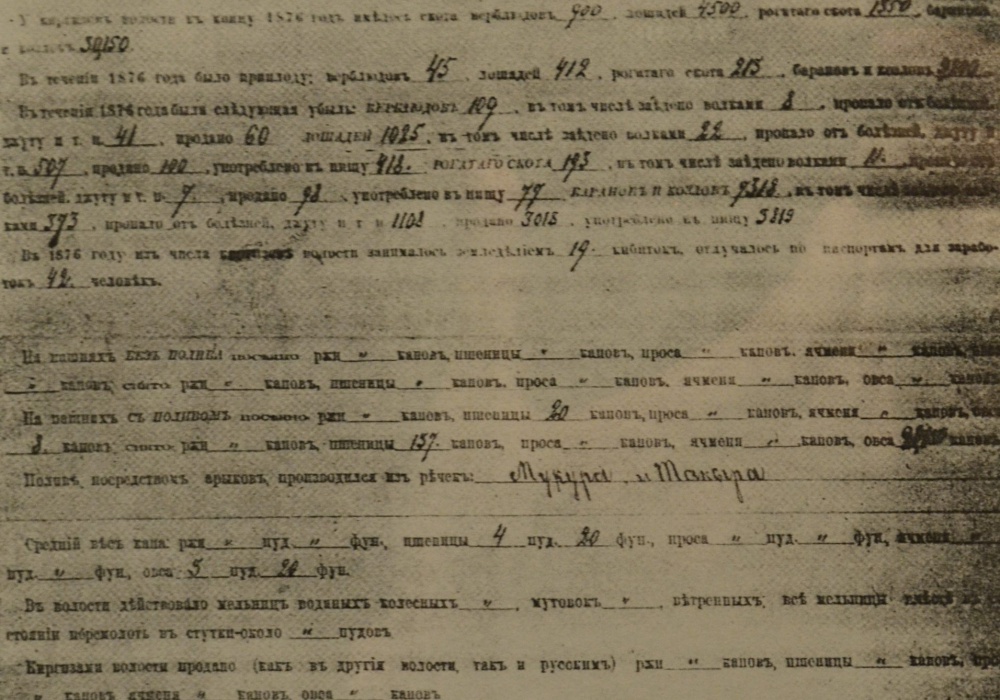 У киргизовъ волости къ концу 1876 года имѣлось скота верблюдовъ 900, лошадей 4500, рогатаго скота 1350, барановъ
и козловъ 30150.
Въ теченіи 1876 года было приплоду: верблюдовъ 45, лошадей 412, рогатаго скота 213, барановъ и козловъ
Въ теченіи 1876 года была слѣдующая убыль: ВЕРБЛЮДОВЪ 109, въ томъ числѣ заѣдено волками 8, пропало отъ болѣзней,
джуту и т. п. 41, продано 60 ЛОШАДЕЙ 1025, въ томъ числѣ заѣдено волками 22, пропало отъ болѣзней, джуту и
т. п. 507, продано 100, употреблено въ пищу 418. РОГАТАГО СКОТА 193, въ томъ числѣ заѣдено волками 11, пропало отъ
болѣзней, джуту и т. п. 7, продано 98, употреблено въ пищу 77 БАРАНОВЪ И КОЗЛОВЪ 7318, въ томъ числѣ
ками 373, пропало отъ болѣзней, джуту и т. п. 1108, продано 3018, употреблено въ пищу 3819
Въ 1876 году изъ числа волости занималось земледѣліемъ 19 кибитокъ, отлучалось по паспортамъ для зарабо-
токъ 42 человѣкъ.
На пашняхъ БЕЗЪ ПОЛИВА посѣяно ржи „ каповъ, пшеницы „ каповъ, проса „ каповъ, ячменя „ каповъ,
„ каповъ, снято ржи „ каповъ, пшеницы „ каповъ, проса „ каповъ, ячменя „ каповъ, овса „ каповъ
На пашняхъ съ ПОЛИВОМЪ посѣяно ржи „ каповъ, пшеницы 20 каповъ, проса „ каповъ, ячменя „ каповъ,
8. каповъ снято ржи „ каповъ, пшеницы 137. каповъ, проса „ каповъ, ячменя „ каповъ, овса каповъ
Поливъ, посредствомъ арыковъ, производился изъ рѣчекъ: Мукура и Такыра
Средній вѣсъ капа: ржи „ пуд. „ фун., пшеницы 4 пуд. 20 фун., проса „ пуд. „ фун., ячменя „
пуд. „ фун., овса 5 пуд. 20 фун.
Въ волости дѣйствовало мельницъ водяныхъ колесныхъ „, мутовокъ „, вѣтренныхъ, всѣ мельницы въ
стояніи перемолоть въ сутки-около „ пудовъ
Киргизами волости продано (какъ въ другія волости, такъ и русскимъ) ржи „ каповъ, пшеницы „ каповъ,
„ каповъ ячменя „ каповъ, овса „ каповъ